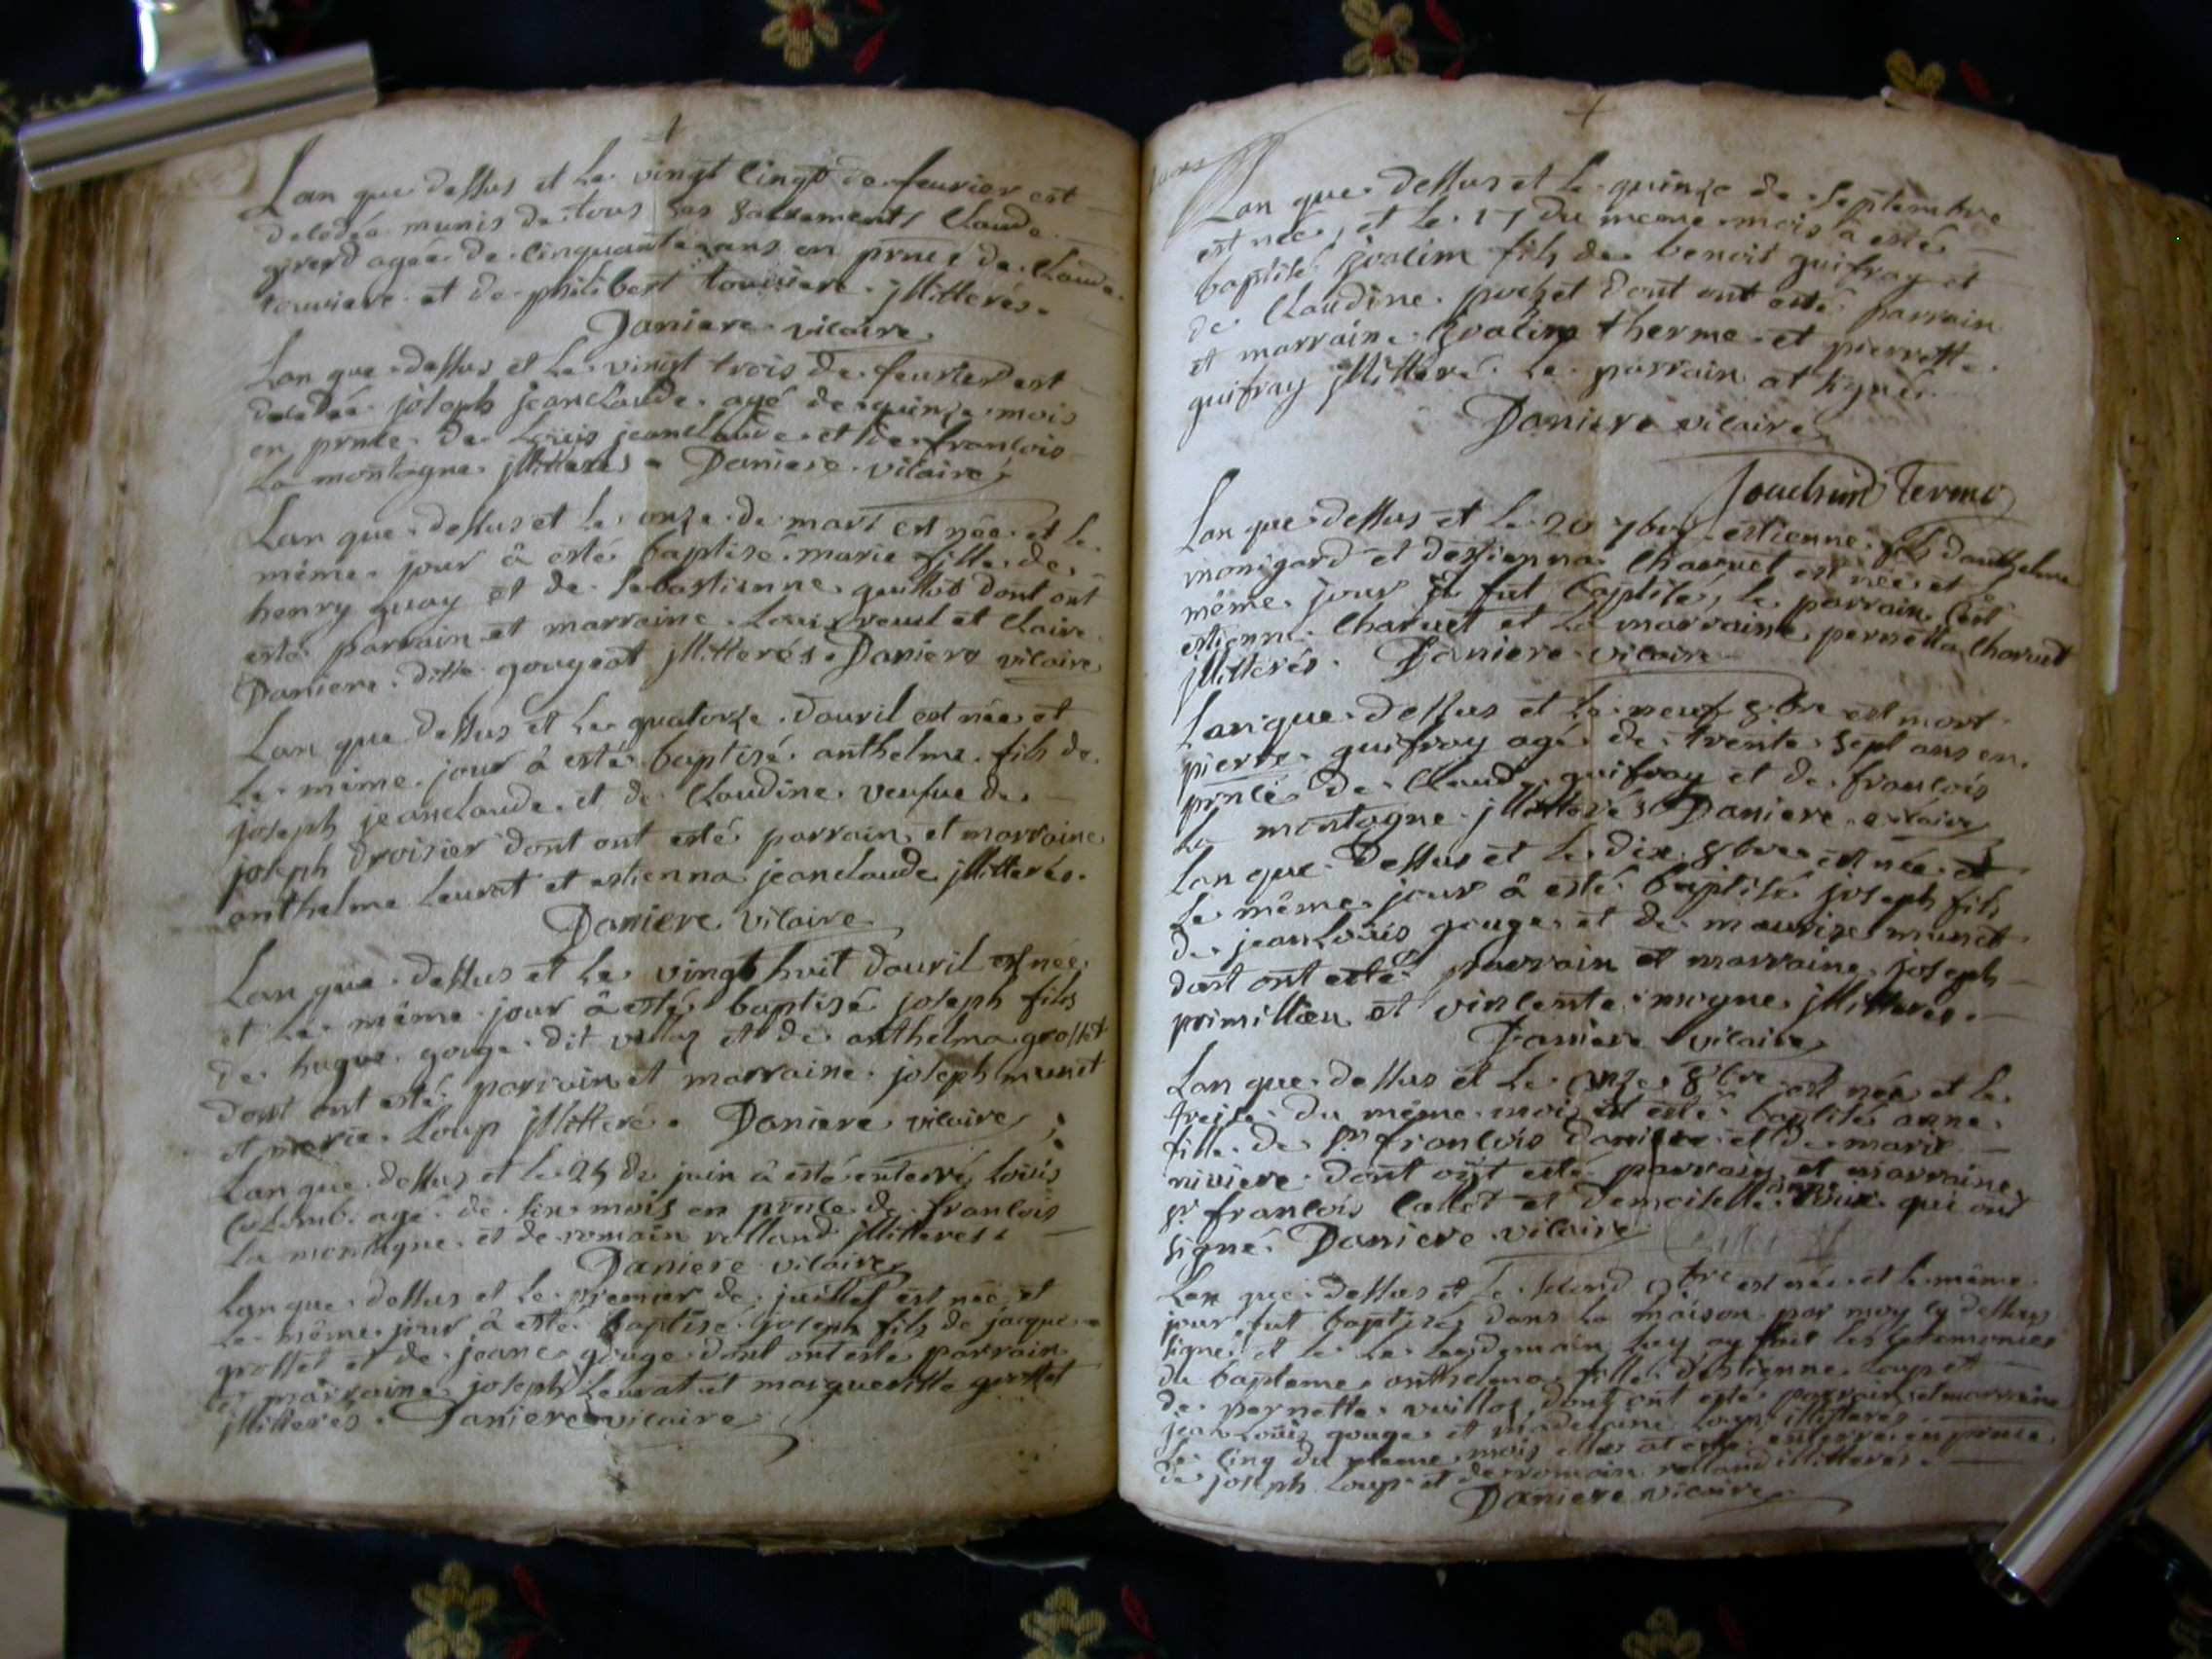 Lan que dessus et le vingt cinq de feurier est
decedéé munis de tous ses sacrements Claude
girerd ageé de cinquante ans en prnce de Claude
touviere et de philibert touviere jllitterés.
Daniere vicaire
Lan que dessus et le vingt trois de feurier est
decedéé joseph jeanclaude agé de quinze mois
en prnce de Loüis jeanclaude et de francois
La montagne jllitterés Daniere vicaire
Lan que dessus et le onze de mars est née et le
même jour â esté baptisé marie fille de
henry guay et de sebastienne guillot dont ont
esté parrain et marraine Louis et Claire
Daniere ditte gougeat jllitterés Daniere vicaire
Lan que dessus et le quatorze dauril est née et
le même jour â esté baptisé anthelme fils de
joseph jeanclaude et de Claudine veufue de
joseph droisier dont ont esté parrain et marraine
anthelme Leurat et estienna jeanclaude jllitterés.
Daniere vicaire
Lan que dessus et le vingt huit dauril est née
et le même jour â esté baptisé joseph fils
de hugue gouge dit et de anthelma grosset
dont ont esté parrain et marraine joseph munet
et marie Loup jllitteré. Daniere vicaire
Lan que dessus et le 25 de juin â esté enterré Loüis
Colomb agé de six mois en prnce de francois
La montagne et de romain rolland jllitterés
Daniere vicaire
Lan que dessus et le premier de juillet est née et
le même jour â esté baptisé joseph fils de jacque
grosset et de jeane gouge dont ont esté parrain
et marraine joseph Leurat et margueritte grosset
jllitterés. Daniere vicaire
Lan que dessus et le quinze de septembre
est née, et le 17 du meme mois â esté
baptisé joacim fils de benoit guifray et
de Claudine pochet dont ont esté parrain
et marraine joacim therme et pierrette
guifray jllitteré. Le parrain at signé.
Daniere vicaire
Joachim Terme
Lan que dessus et le 20 7bre estienne fils danthelme
monigard et destienna Charuet est née et
même jour il fut baptisé, le parrain Cest
estienne Charuet et la marraine pernetta Charuet
jllitterés. Daniere vicaire
Lan que dessus et le neuf 8bre est mort
pierre guifray agé de trente sept ans en
prnce de Claude guifray et de francois
La montagne jllitterés Daniere vicaire
Lan que dessus et le dix 8bre est née et
le même jour â esté baptisé joseph fils
de jeanLoüis gouge et de maurize munet
dont ont esté parrain et marraine joseph
et vincente moyne jllitteres.
Daniere vicaire
Lan que dessus et le onze 8bre est née et le
treize du même mois at esté baptisé anne
fille de sr francois daniere et de marie
riviere dont ont esté parrain et marraine
sr francois Callet et demoiselle anne qui ont
signé. Daniere vicaire
Lan que dessus et le second 9bre est née et le même
jour fut baptisée dans la maison par moy cy dessus
signé et le lendemain luy ay fait les ceremonies
du bapteme anthelma fille destienne Loup et
de pernette vuilloz dont ont esté parrain et marraine
jean Loüis gouge et madelaine Loup illitterés.
Le cinq du meme mois elle at esté enterrée en prnce
de joseph Loup et de romain rolland illitterés.
Daniere vicaire